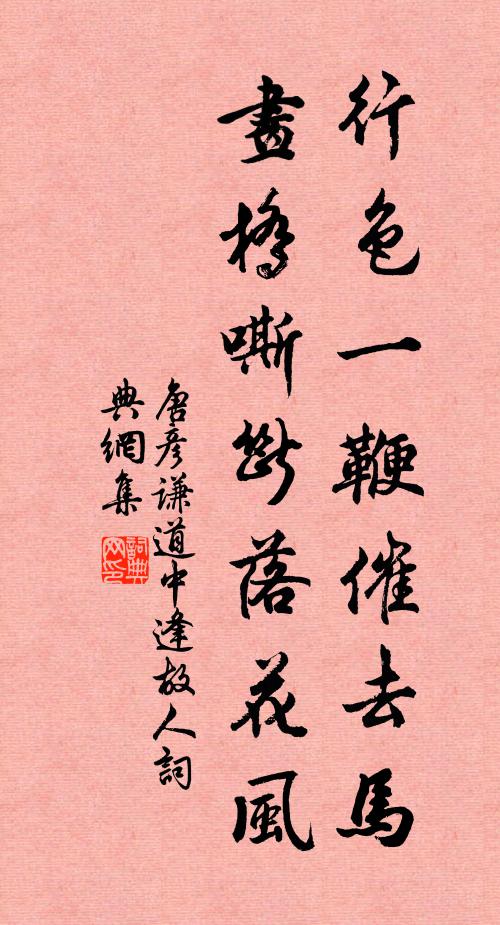 行色一鞭催去馬
畫橋嘶斷落花風
唐彥謙道中逢故人詞
典網集
詞典網印